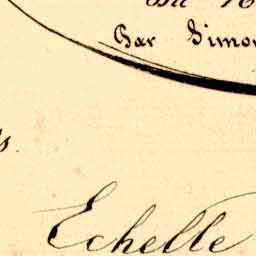 Par Simon
s.
Echelle